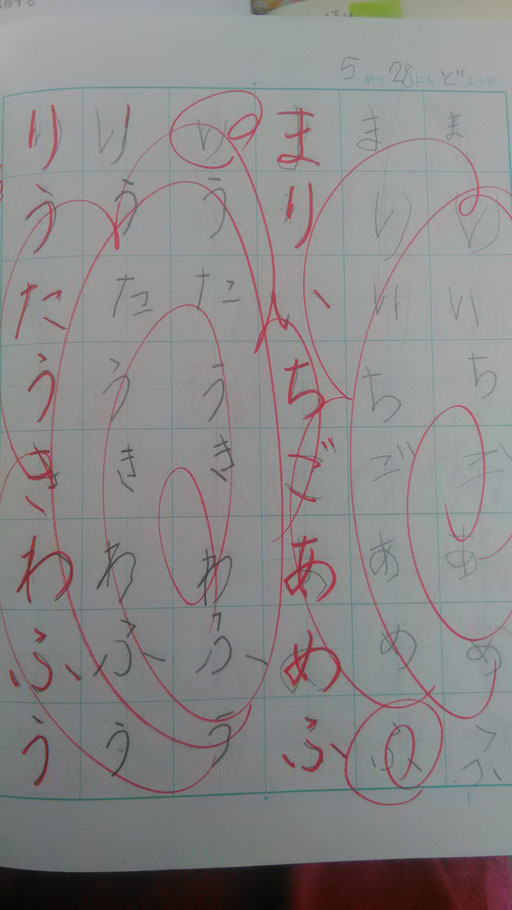 5がつ28にちどようび
まりいちごあめふ
まりいちごあめふ
まりいちごあめふ
りうたうきわふう
りうたうきわふう
りうたうきわふう